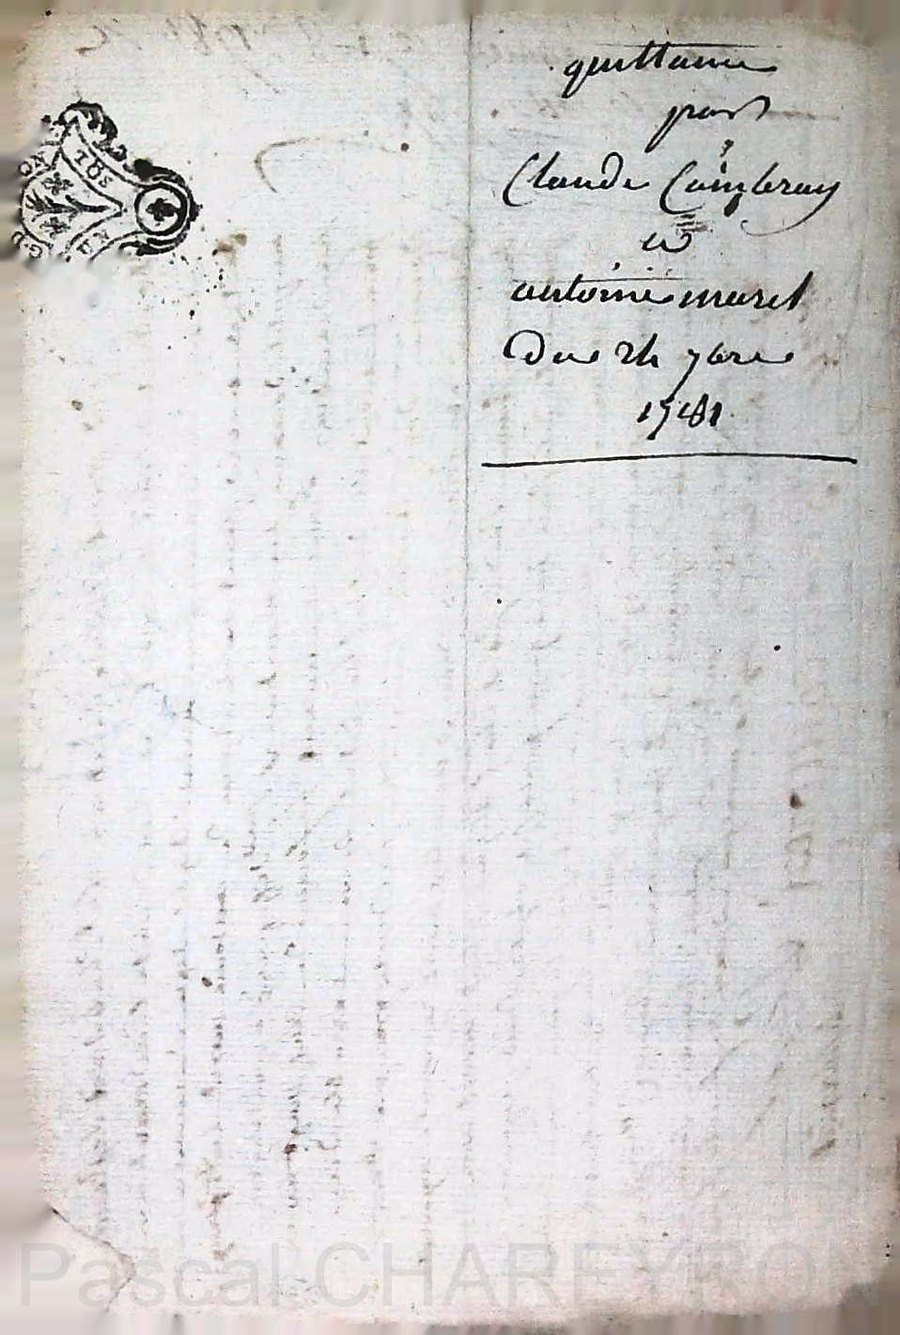 quittance
pour
Claude Cambray
et
antoine muret
Du 24 7bre
1781
TBS
Pascal CHAREYRON